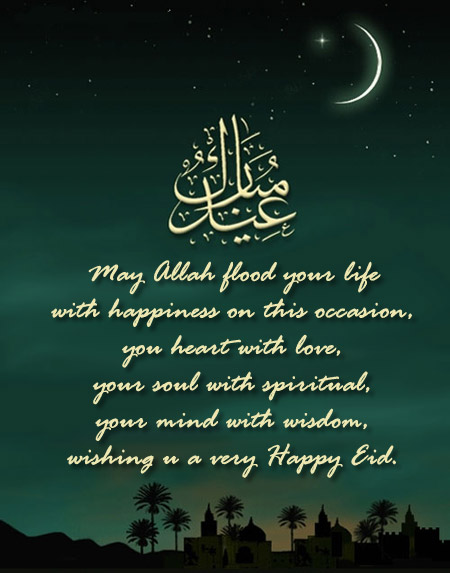 عيد مبارك
May Allah flood your life
with happiness on this occasion,
you heart with love,
your soul with spiritual,
your mind with wisdom,
wishing u a very Happy Eid.